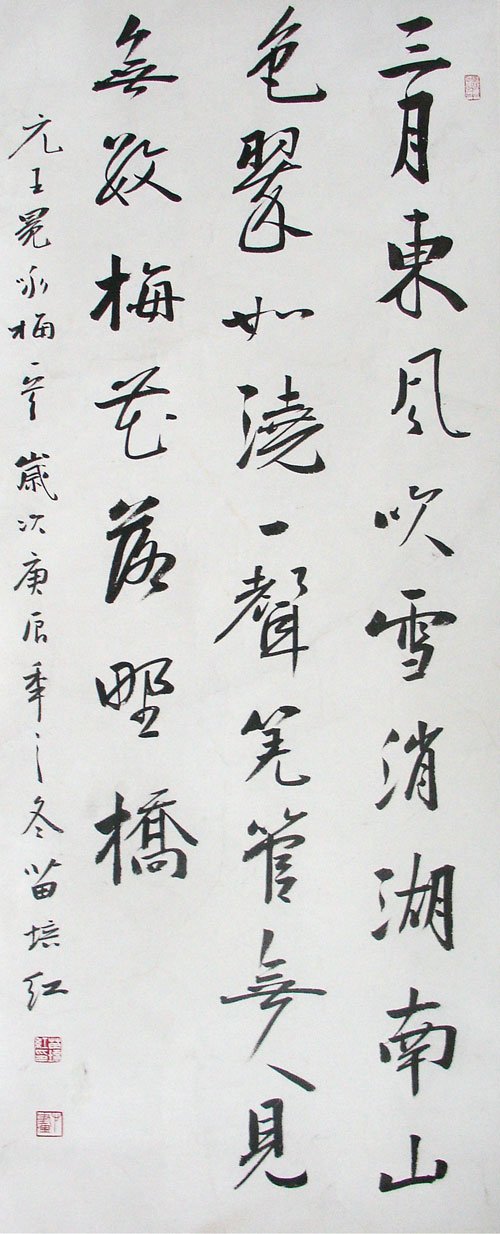 三月東風吹雪消湖南山
色翠如澆一聲羌管無人見
無數梅花落野橋
元王冕詠梅一首歲次庚辰年之冬苗培紅